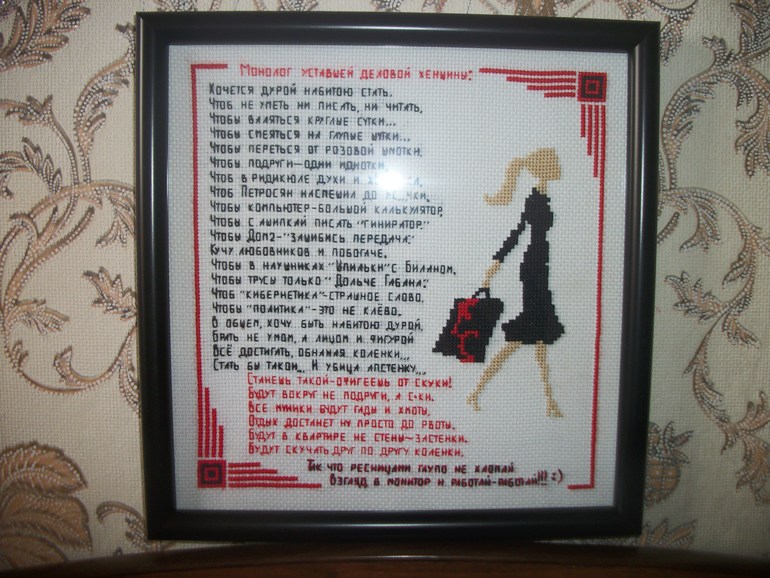 Монолог уставшей деловой женщины:
Хочется дурой набитою стать.
Чтоб не уметь ни писать, ни читать,
Чтобы валяться круглые сутки...
Чтобы смеяться на глупые шутки...
Чтобы переться от розовой шмотки,
Чтобы подруги-одни идиотки,
Чтоб в ридикюле духи и
Чтоб Петросян насмешил до
Чтобы компьютер-большой калькулятор,
Чтобы с ашипкай писать "гиниратор"
Чтобы Дом2-"зашибись передача"
Кучу любовников и побогаче.
Чтобы в наушниках "Шпильки" с Биланом,
Чтобы трусы только "Дольче Габана"
Чтоб "кибернетика"-страшное слово,
Чтобы "политика"-это не клёво.
В общем, хочу быть набитою дурой,
Брать не умом, а лицом и фигурой
Всё достигать, обнажая коленки...
Стать бы такой... И убица апстенку...
Станешь такой-офигеешь от скуки!
Будут вокруг не подруги, а с*ки.
Все мужики будут гады и жмоты.
Отдых достанет ну просто до рвоты.
Будут в квартире не стены-застенки.
Будут скучать друг по другу коленки.
Так что ресницами глупо не хлопай
Взгляд в монитор и работай-работай!!! :)